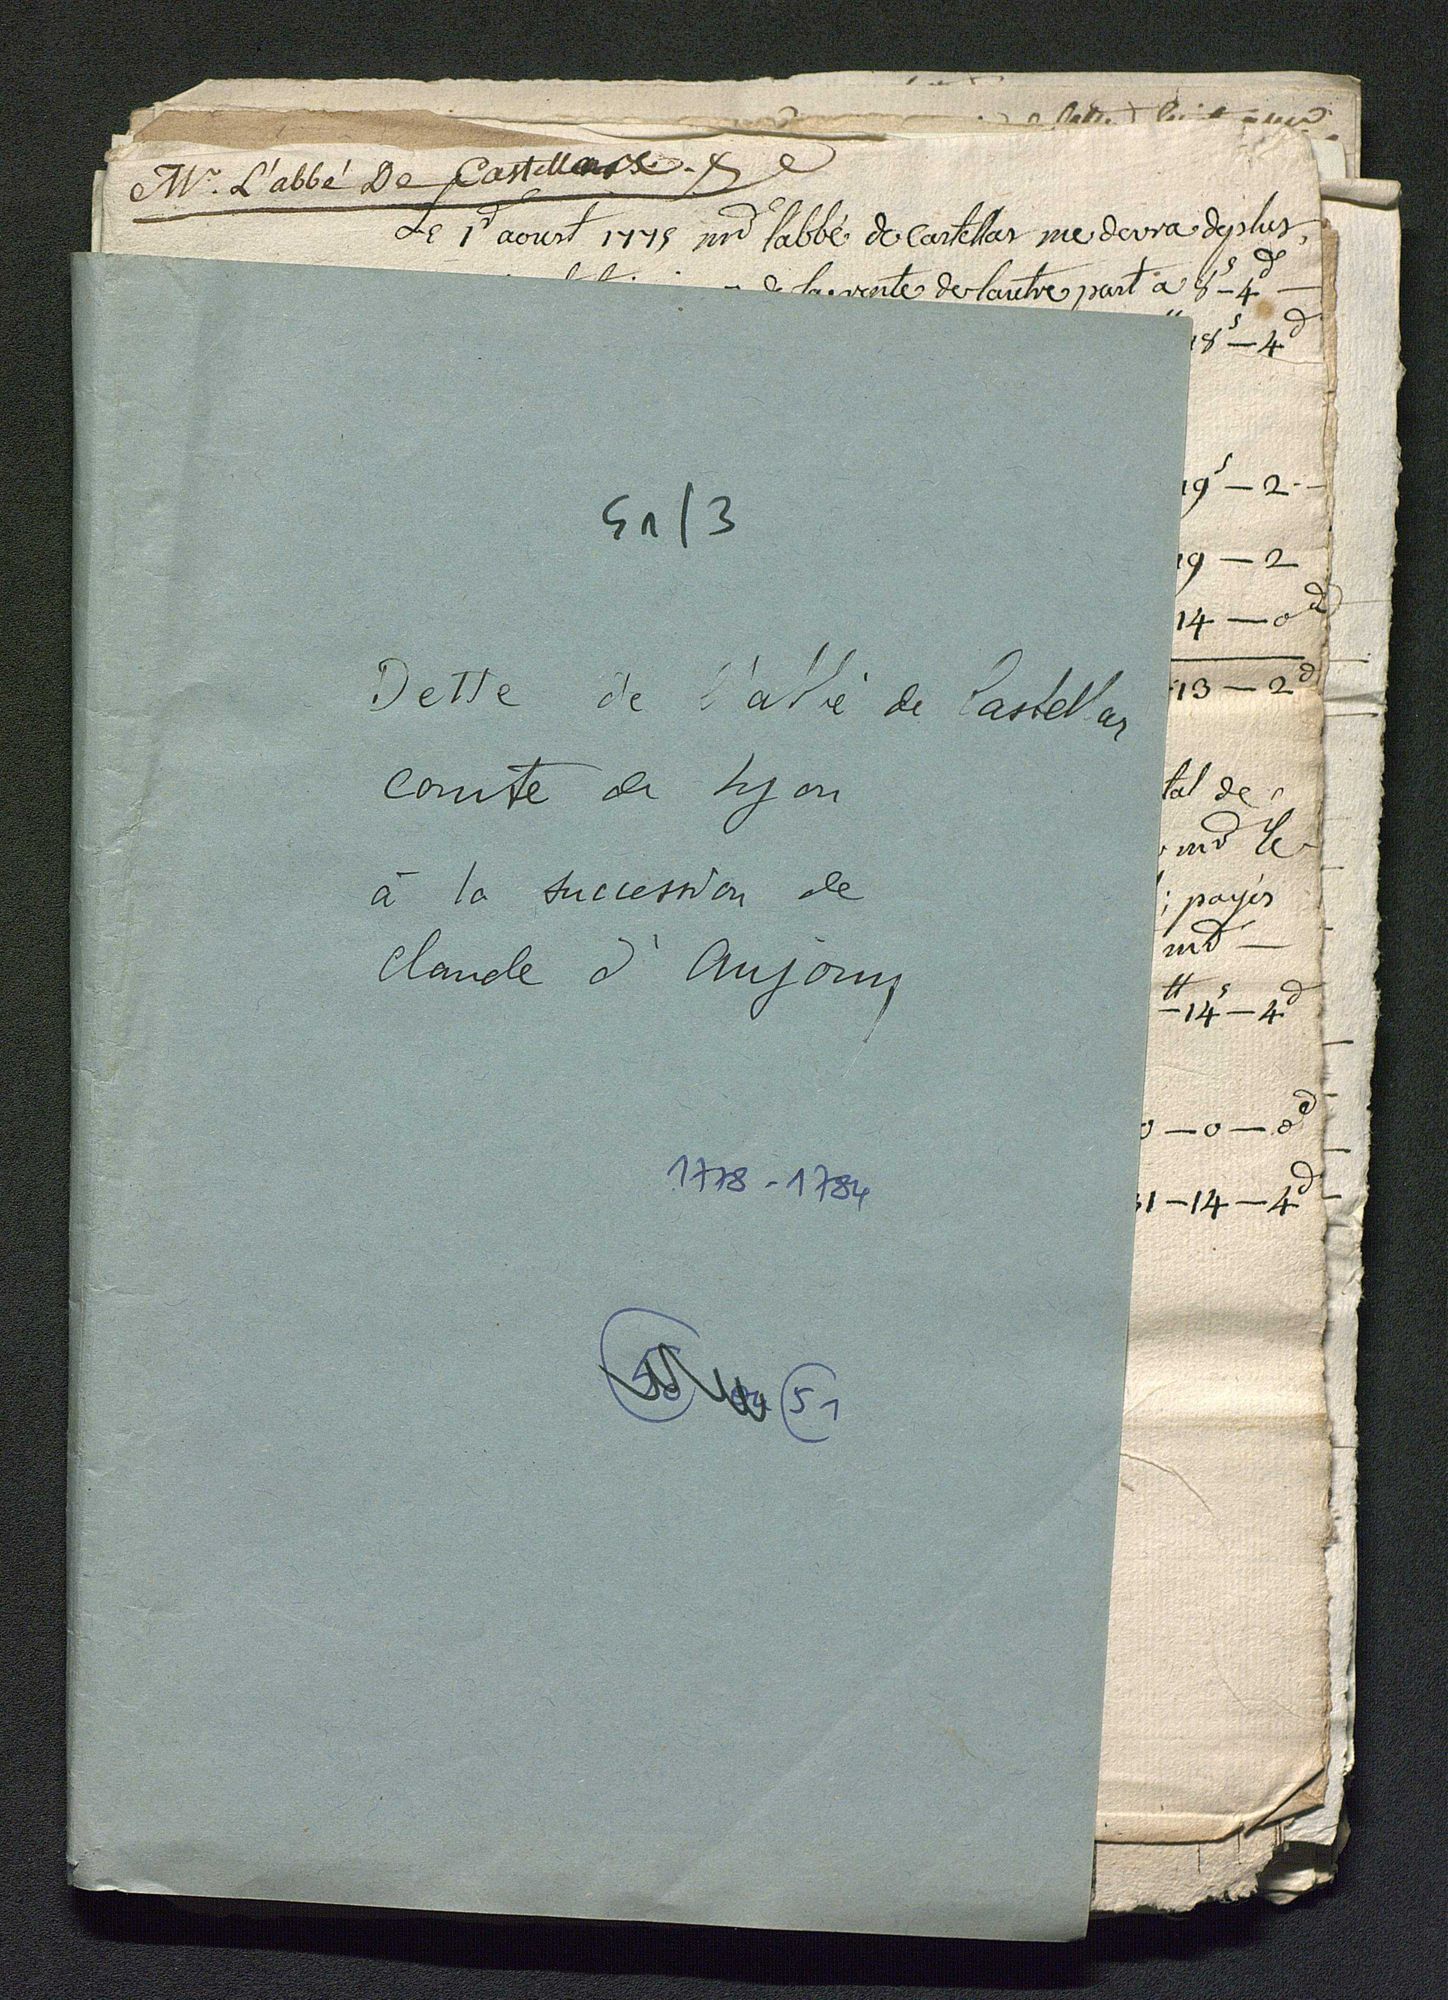 Mr. L'abbé De Castellas
Le 1r aoust 1775 mr l'abbé de Castellas me devra de plus
de la rente de l'autre part a 8s-4d
18s-4d
19s-2
19-2
14-0d
13-2d
tal de
mr le
; payés
mr
tt-14s-4d
0-0-0d
31-14-4d
51/3
Dette de l'abbé de Castellas
comte de Lyon
à la succession de
Claude d'Anjou
1778-1784
51